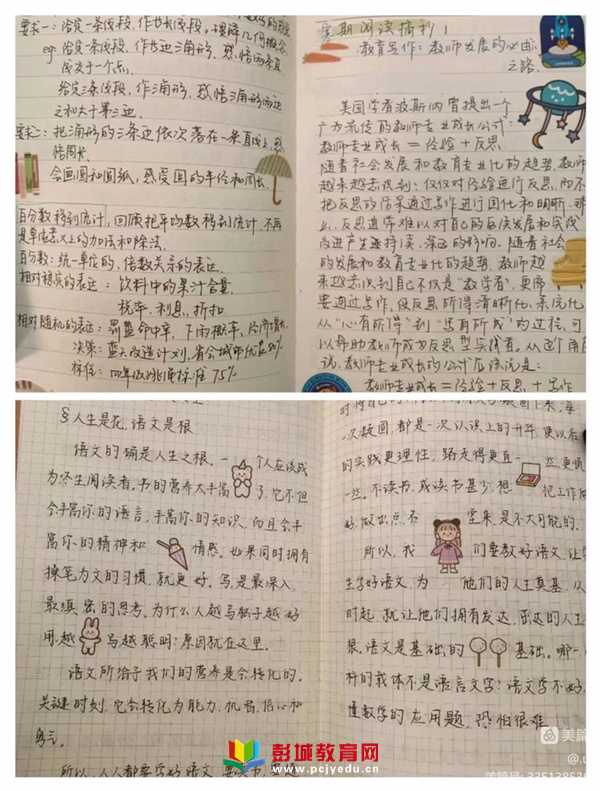 要求一：给定一条线段，作等长线段。理解几何概念
eg：给定一条线段，作等边三角形，感悟两条直
线交于一个点。
给定三条线段，作三角形，感悟三角形两边
之和大于第三边。
要求二：把三角形的三条边依次落在一条直线上，感
悟周长
会画圆和圆弧，感受圆的半径和周长。
百分数移到统计，回顾把平均数移到统计，不再
是单纯意义上的加法和除法。
百分数：统一单位的，倍数关系的表达
相对稳定的表达：饮料中的果汁含量
税率，利息，折扣
相对随机的表达：罚篮命中率，下雨概率，经济增长
决策：蓝天改造计划，省会城市优良80%
标准：四年级跳绳标准75%
星期阅读摘抄1
教育写作：教师发展的必由
之路。
美国学者波斯纳曾提出一个
广为流传的教师专业成长公式：
教师专业成长＝经验＋反思。
随着社会发展和教育专业化的趋势，教师
越来越意识到：仅仅对经验进行反思，而不
把反思的结果通过写作进行固化和明晰，那
么，反思通常难以对自己的后续发展和实践
改进产生持续、深远的影响。随着社会
的发展和教育专业化的趋势，教师越
来越意识到自己不仅是“教学者”，更需
要通过写作，使反思所得清晰化、系统化
从“心有所得”到“笔有所成”的过程，可
以帮助教师成为反思型实践者。从这个角度
说，教师专业成长的公式应该说是：
教师专业成长＝经验＋反思＋写作
§人生是花，语文是根
语文的确是人生之根。一个人应该成
为终生阅读者。书的营养太丰富了，它不但
会丰富你的语言，丰富你的知识，而且会丰
富你的精神和情感。如果同时拥有
操笔为文的习惯，就更好。写，是最深入、
最缜密的思考。为什么人越写脑子越好
用，越写越聪明？原因就在这里。
语文所给予我们的营养是会转化的。
关键时刻，它会转化为能力、机智、信心和
勇气。
所以，人人都要学好语文，要读书，
一次数图，都是一次认识上的升华，使以后
的实践更理性，路走得更直一些，更慎
一些。不读书，或读书甚少，想把工作做
好，做出点名堂来，是不大可能的。
所以，我们要教好语文，让学
生学好语文，为他们的人生奠基，从
时起，就让他们拥有发达、茁壮的人生
根。语文是基础的基础。哪一
科的载体不是语言文字？语文学不好，
懂数学的应用题，恐怕很难
彭城教育网
www.pcjyedu.cn
美篇
@
美篇号：33513853